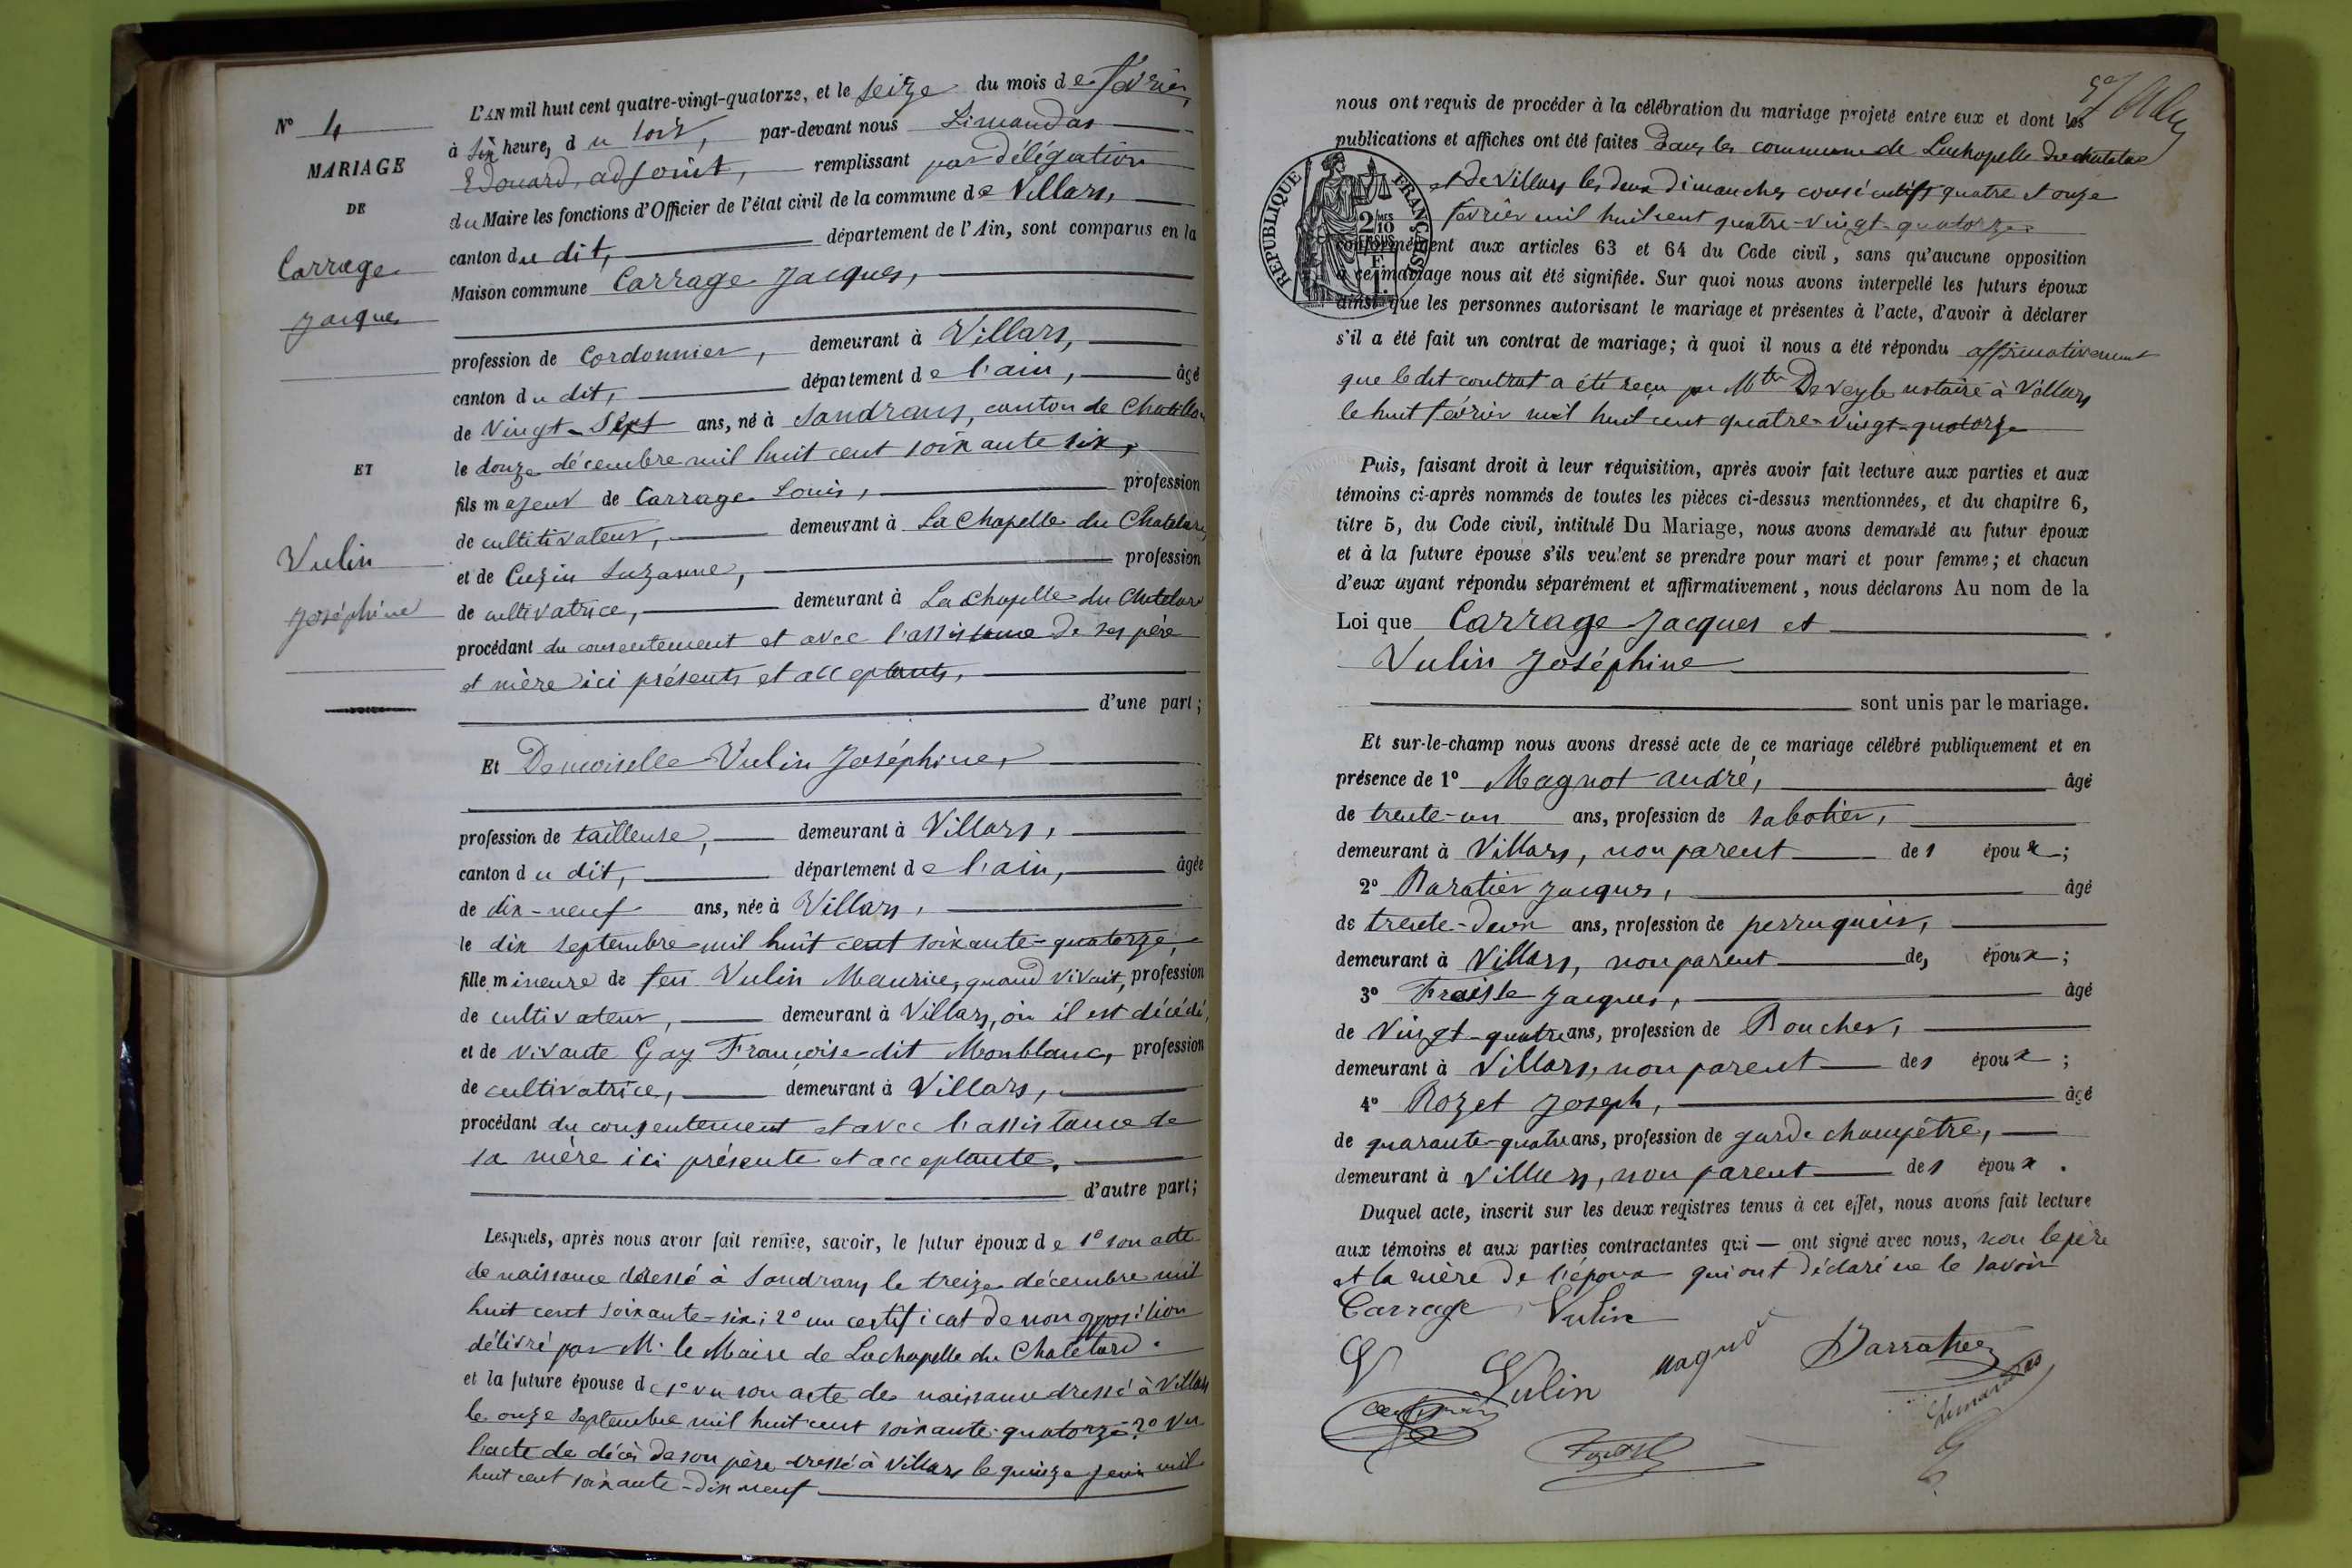 N° 4
MARIAGE
DE
Carrage
Jacques
ET
Vulin
Joséphine
L'AN mil huit cent quatre-vingt-quatorze, et le seize du mois de février,
à six heure, du soir, par-devant nous Limandas
Edouard, adjoint, remplissant par délégation
du Maire les fonctions d'Officier de l'état civil de la commune de Villars,
canton du dit, département de l'Ain, sont comparus en la
Maison commune Carrage Jacques,
profession de Cordonnier, demeurant à Villars,
canton du dit, département de l'ain, âgé
de vingt-sept ans, né à Sandrans, canton de Chatillon
le douze décembre mil huit cent soixante six,
fils majeur de Carrage Louis, profession
de cultitivateur, demeurant à La Chapelle du Chatelard
et de Cuzin Suzanne, profession
de cultivatrice, demeurant à La Chapelle du Chatelard
procédant du consentement et avec l'assistance de ses père
et mère ici présents et acceptants,
d'une part;
Et Demoiselle Vulin Joséphine,
profession de tailleuse, demeurant à Villars,
canton du dit, département de l'ain, âgée
de dix-neuf ans, née à Villars,
le dix septembre mil huit cent soixante-quatorze,
fille mineure de feu Vulin Maurice, quand vivait, profession
de cultivateur, demeurant à Villars, où il est décédé,
et de vivante Gay Françoise dit Monblanc, profession
de cultivatrice, demeurant à Villars,
procédant du consentement et avec l'assistance de
sa mère ici présente et acceptante,
d'autre part;
Lesquels, après nous avoir fait remise, savoir, le futur époux de 1° son acte
de naissance dressé à Sandrans le treize décembre mil
huit cent soixante-six; 2° un certificat de non opposition
délivré par M. le Maire de Lachapelle du Chatelard.
et la future épouse de 1° vu son acte de naissance dressé à Villars
le onze septembre mil huit cent soixante-quatorze 2° vu
l'acte de décès de son père dressé à Villars le quinze juin mil
huit cent soixante-dix neuf
nous ont requis de procéder à la célébration du mariage projeté entre eux et dont les
publications et affiches ont été faites dans les commune de Lachapelle du chatelard
et de Villars les deux dimanches consécutifs quatre et onze
février mil huit cent quatre-vingt-quatorze
RÉPUBLIQUE FRANÇAISE
2 MES 10
EN SUS
F.
1.
conformément aux articles 63 et 64 du Code civil, sans qu'aucune opposition
à ce mariage nous ait été signifiée. Sur quoi nous avons interpellé les futurs époux
ainsi que les personnes autorisant le mariage et présentes à l'acte, d'avoir à déclarer
s'il a été fait un contrat de mariage; à quoi il nous a été répondu affirmativement
que le dit contrat a été reçu par Mtre Deveyle notaire à Villars
le huit février mil huit cent quatre-vingt-quatorze
Puis, faisant droit à leur réquisition, après avoir fait lecture aux parties et aux
témoins ci-après nommés de toutes les pièces ci-dessus mentionnées, et du chapitre 6,
titre 5, du Code civil, intitulé Du Mariage, nous avons demandé au futur époux
et à la future épouse s'ils veulent se prendre pour mari et pour femme; et chacun
d'eux ayant répondu séparément et affirmativement, nous déclarons Au nom de la
Loi que Carrage Jacques et
Vulin Joséphine
sont unis par le mariage.
Et sur-le-champ nous avons dressé acte de ce mariage célébré publiquement et en
présence de 1° Magnot André, âgé
de trente-un ans, profession de sabotier,
demeurant à Villars, non parent des époux;
2° Baratier Jacques, âgé
de trente-deux ans, profession de perruquier,
demeurant à Villars, non parent des époux;
3° Fraisse Jacques, âgé
de vingt-quatre ans, profession de Boucher,
demeurant à Villars, non parent des époux;
4° Rozet Joseph, âgé
de quarante-quatre ans, profession de garde champêtre,
demeurant à Villars, non parent des époux.
Duquel acte, inscrit sur les deux registres tenus à cet effet, nous avons fait lecture
aux témoins et aux parties contractantes qui — ont signé avec nous, non le père
et la mère de l'époux qui ont déclaré ne le savoir
Carrage Vulin
Vulin Magnot Barratier
Limandas